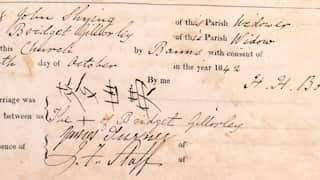 John Shying of this Parish Widower
Bridget Gillorley of this Parish Widow
this Church by Banns with consent of
th day of October in the year 1842
By me H. H. Bo
世
arriage was
between us The + of Bridget Gillorley
James Turner of
sence of J. F. Staff of